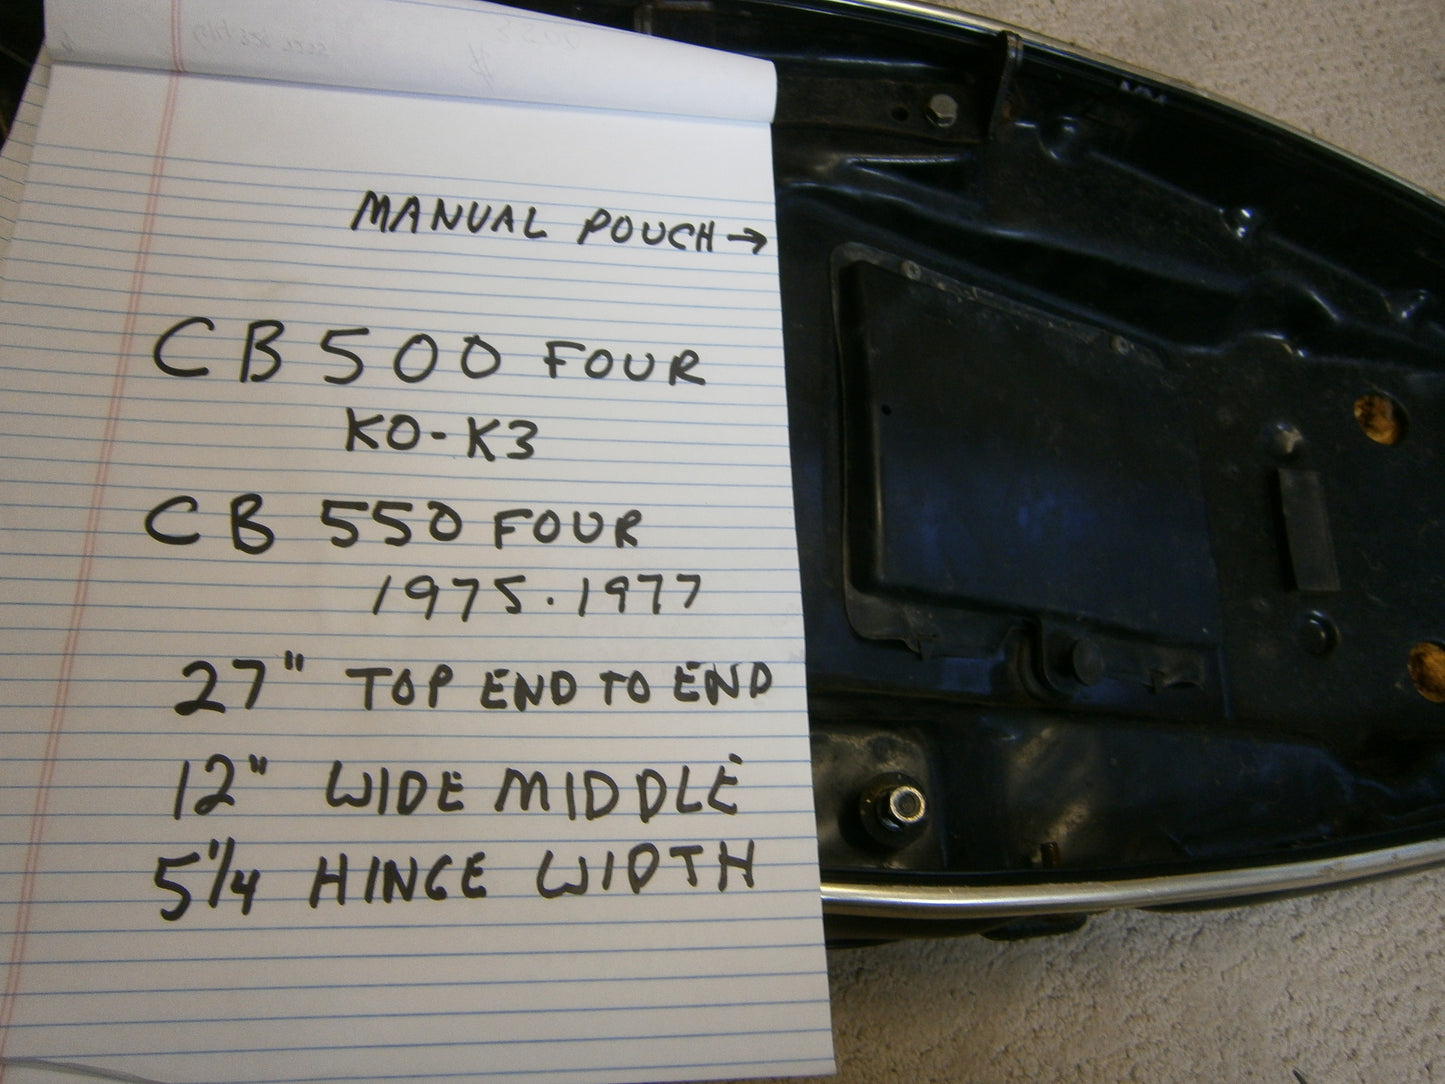 MANUAL POUCH →
CB 500 FOUR
K0-K3
CB 550 FOUR
1975-1977
27" TOP END TO END
12" WIDE MIDDLE
5 1/4 HINGE WIDTH